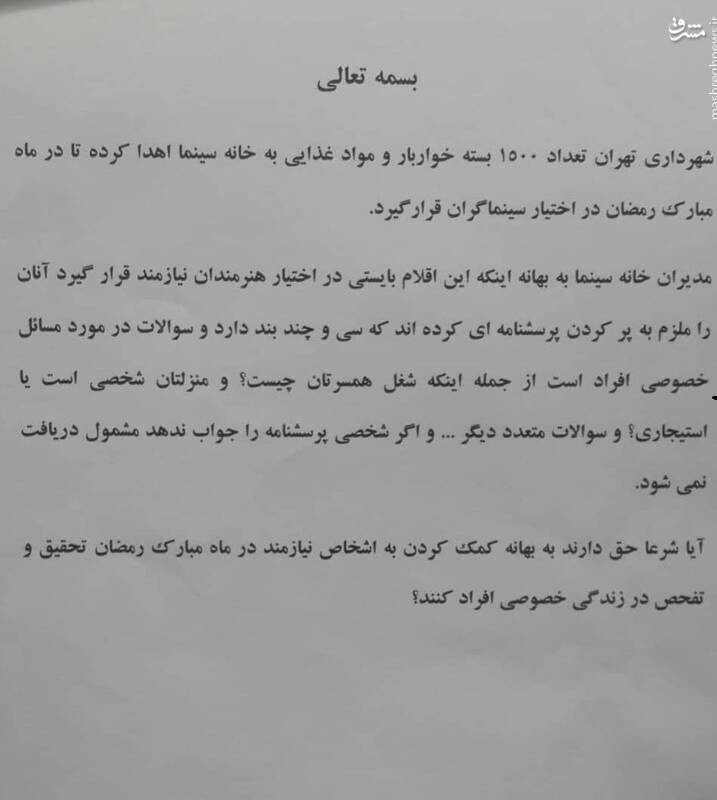 مشرق
mashreghnews.ir
بسمه تعالی
شهرداری تهران تعداد ۱۵۰۰ بسته خواربار و مواد غذایی به خانه سینما اهدا کرده تا در ماه
مبارک رمضان در اختیار سینماگران قرارگیرد.
مدیران خانه سینما به بهانه اینکه این اقلام بایستی در اختیار هنرمندان نیازمند قرار گیرد آنان
را ملزم به پر کردن پرسشنامه ای کرده اند که سی و چند بند دارد و سوالات در مورد مسائل
خصوصی افراد است از جمله اینکه شغل همسرتان چیست؟ و منزلتان شخصی است یا
استیجاری؟ و سوالات متعدد دیگر ... و اگر شخصی پرسشنامه را جواب ندهد مشمول دریافت
نمی شود.
آیا شرعا حق دارند به بهانه کمک کردن به اشخاص نیازمند در ماه مبارک رمضان تحقیق و
تفحص در زندگی خصوصی افراد کنند؟